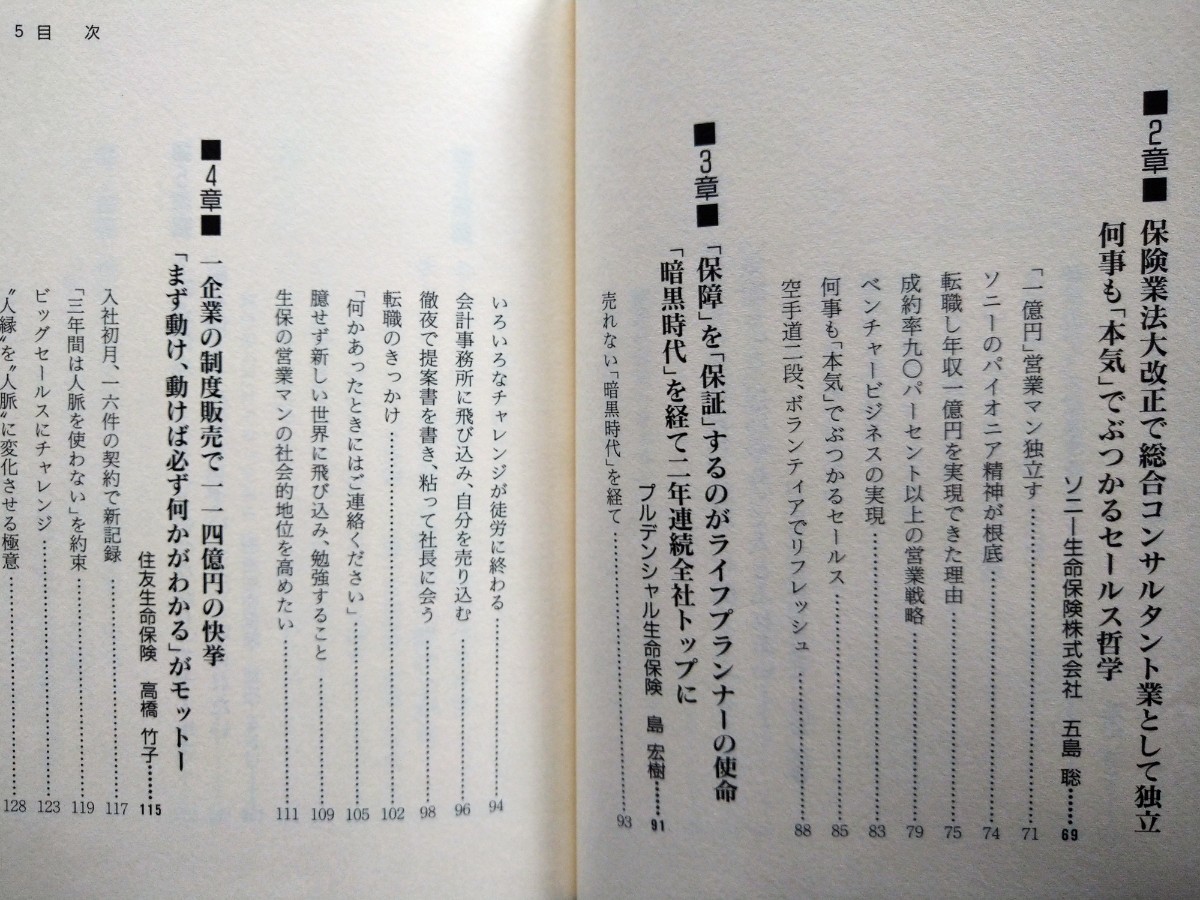 ■2章■ 保険業法大改正で総合コンサルタント業として独立
何事も「本気」でぶつかるセールス哲学
ソニー生命保険株式会社 五島 聡……69
「一億円」営業マン独立す……71
ソニーのパイオニア精神が根底……74
転職し年収一億円を実現できた理由……75
成約率九〇パーセント以上の営業戦略……79
ベンチャービジネスの実現……83
何事も「本気」でぶつかるセールス……85
空手道二段、ボランティアでリフレッシュ……88
■3章■ 「保障」を「保証」するのがライフプランナーの使命
「暗黒時代」を経て二年連続全社トップに
プルデンシャル生命保険 島 宏樹……91
売れない「暗黒時代」を経て……93
5 目 次
いろいろなチャレンジが徒労に終わる……94
会計事務所に飛び込み、自分を売り込む……96
徹夜で提案書を書き、粘って社長に会う……98
転職のきっかけ……102
「何かあったときにはご連絡ください」……105
臆せず新しい世界に飛び込み、勉強すること……109
生保の営業マンの社会的地位を高めたい……111
■4章■ 一企業の制度販売で一一四億円の快挙
「まず動け、動けば必ず何かがわかる」がモットー
住友生命保険 高橋 竹子……115
入社初月、一六件の契約で新記録……117
「三年間は人脈を使わない」を約束……119
ビッグセールスにチャレンジ……123
〝人縁〟を〝人脈〟に変化させる極意……128